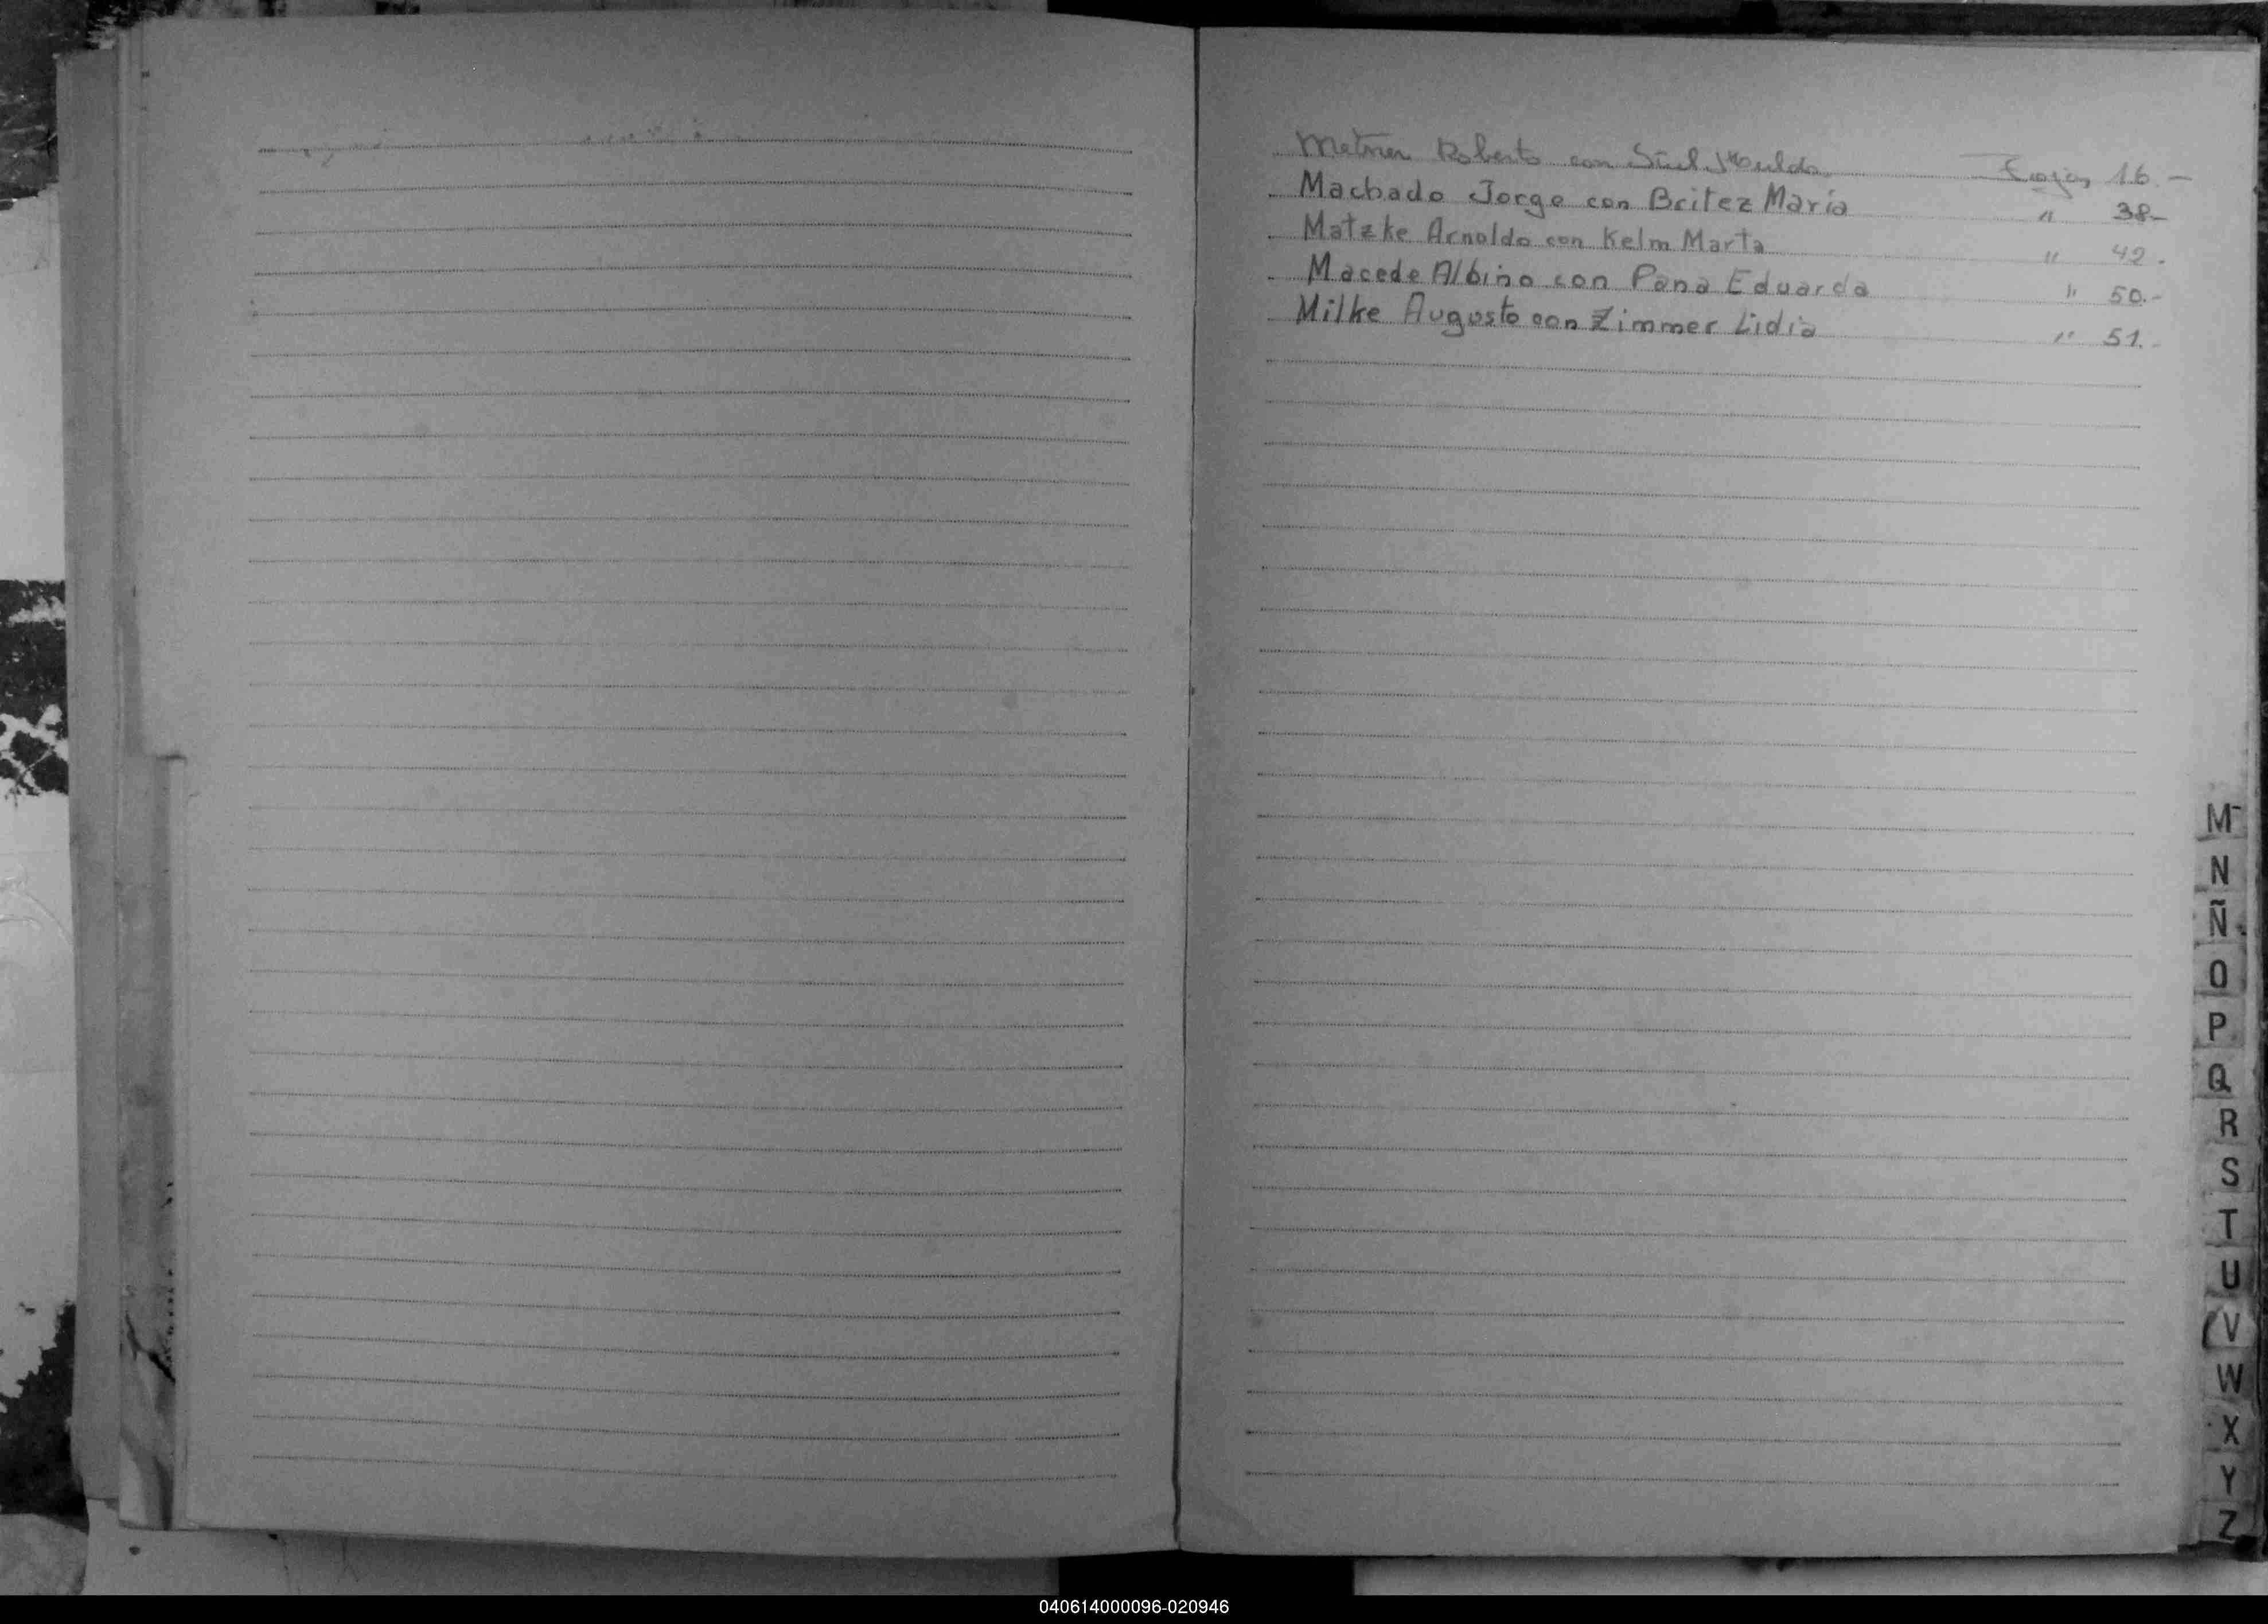 Metner Roberto con Siul Hulda Fojas 16.-
Machado Jorge con Britez María " 38-
Matzke Arnoldo con Kelm Marta " 42.
Macede Albino con Pana Eduarda " 50.-
Milke Augusto con Zimmer Lidia " 51.-
M
N
Ñ
O
P
Q
R
S
T
U
V
W
X
Y
Z
040614000096-020946